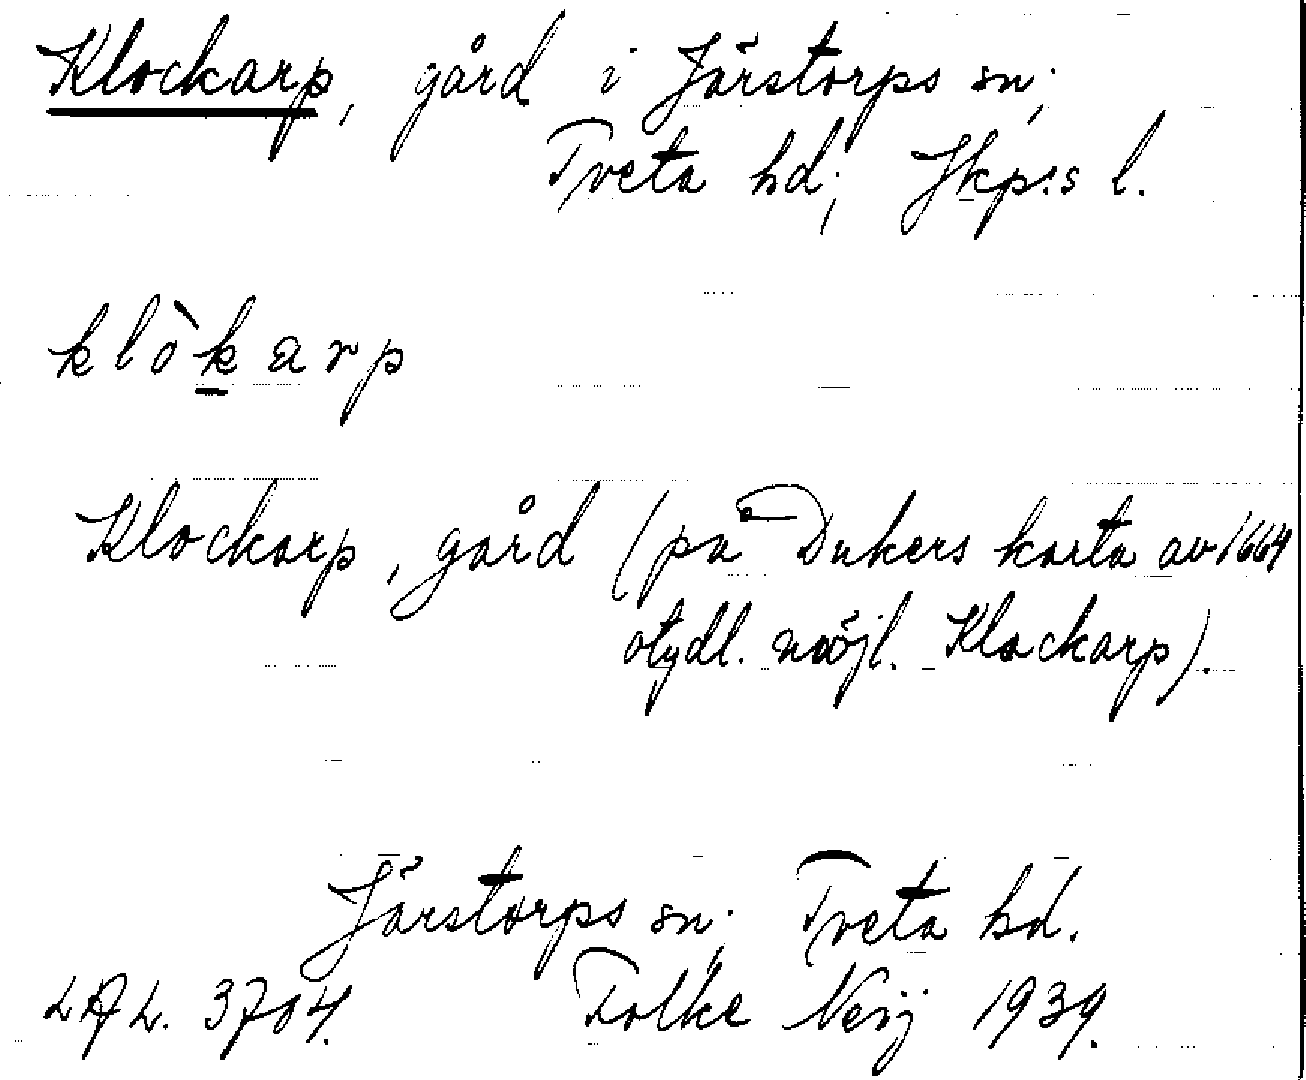 Klockarp, gård i Järstorps sn;
Tveta hd; Jkp:s l.
klòkarp
Klockarp, gård (på Dukers karta av 1664
otydl. möjl. Klockarp).
Järstorps sn; Tveta hd.
LAL. 3704. Folke Neij 1939.